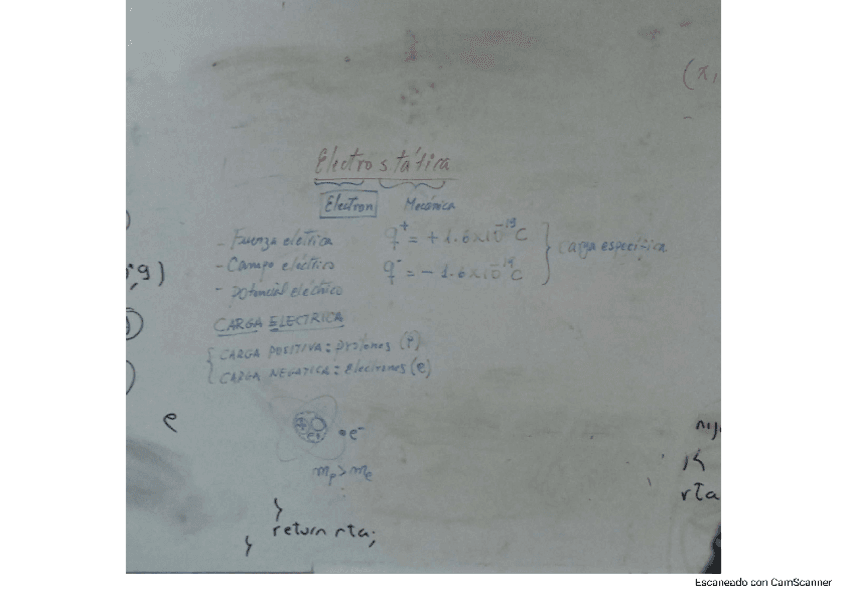 (x,
Electrostática
Electron Mecánica
- Fuerza eléctrica q⁺ = + 1.6x10⁻¹⁹ C
- Campo eléctrico q⁻ = - 1.6x10⁻¹⁹ C } carga específica
- potencial eléctrico
;g)
CARGA ELECTRICA
{ CARGA POSITIVA: protones (p)
CARGA NEGATICA: Electrones (e)
e
e⁻
mp > me
rta
}
return rta;
}
Escaneado con CamScanner